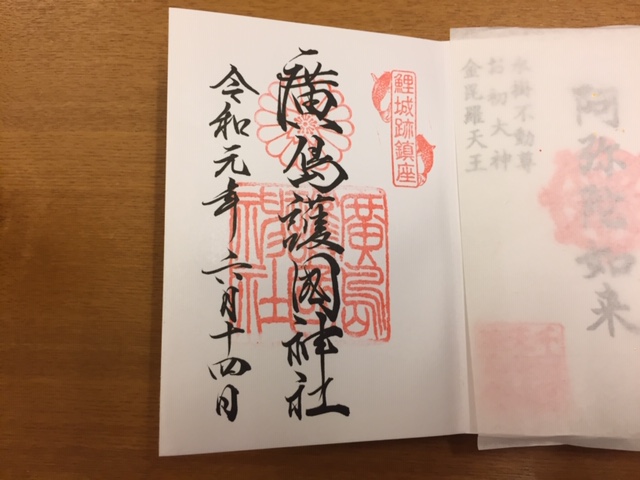 阿弥陀如来
水掛不動尊
金毘羅天王
鯉城跡鎮座
廣島護國神社
廣島護國神社
令和元年六月十四日